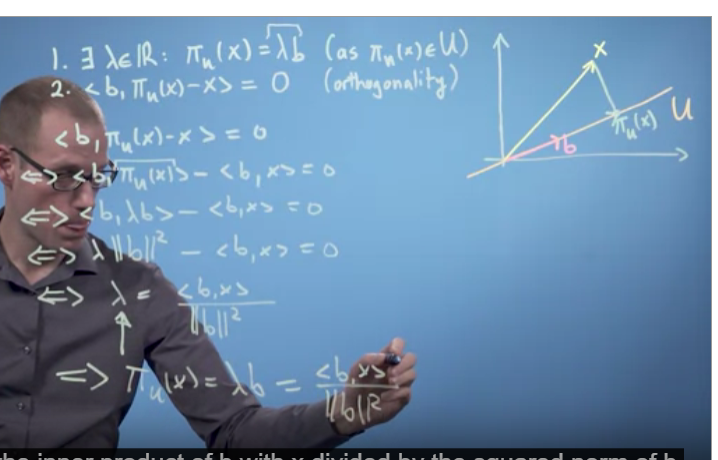 1. ∃ λ∈ℝ: π_u(x) = λb (as π_u(x)∈U)
2. <b, π_u(x)-x> = 0 (orthogonality)
<b, π_u(x)-x> = 0
<=> <b, π_u(x)> - <b,x> = 0
<=> <b, λb> - <b,x> = 0
<=> λ||b||² - <b,x> = 0
<=> λ = <b,x> / ||b||²
=> π_u(x) = λb = <b,x> / ||b||²
x
U
π_u(x)
b
the inner product of b with x divided by the squared norm of b